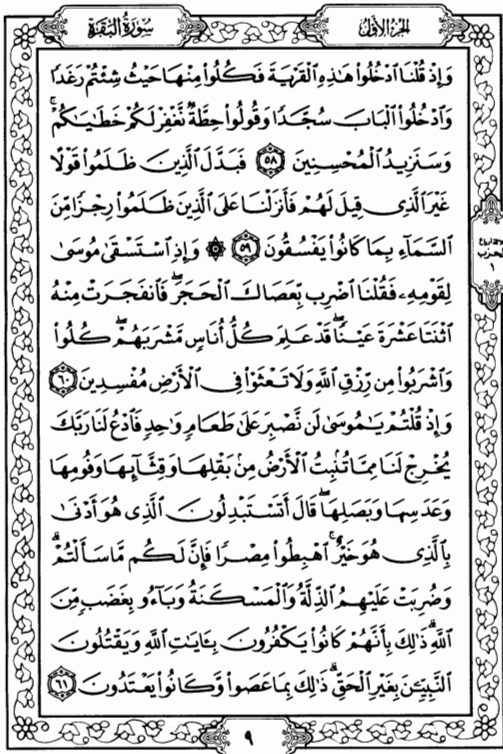 سورة البقرة
الجزء الأول
وَإِذْ قُلْنَا ٱدْخُلُوا۟ هَٰذِهِ ٱلْقَرْيَةَ فَكُلُوا۟ مِنْهَا حَيْثُ شِئْتُمْ رَغَدًا
وَٱدْخُلُوا۟ ٱلْبَابَ سُجَّدًا وَقُولُوا۟ حِطَّةٌ نَّغْفِرْ لَكُمْ خَطَٰيَٰكُمْ ۚ
وَسَنَزِيدُ ٱلْمُحْسِنِينَ ٥٨ فَبَدَّلَ ٱلَّذِينَ ظَلَمُوا۟ قَوْلًا
غَيْرَ ٱلَّذِى قِيلَ لَهُمْ فَأَنزَلْنَا عَلَى ٱلَّذِينَ ظَلَمُوا۟ رِجْزًا مِّنَ
ٱلسَّمَآءِ بِمَا كَانُوا۟ يَفْسُقُونَ ٥٩ ۞ وَإِذِ ٱسْتَسْقَىٰ مُوسَىٰ
لِقَوْمِهِۦ فَقُلْنَا ٱضْرِب بِّعَصَاكَ ٱلْحَجَرَ ۖ فَٱنفَجَرَتْ مِنْهُ
ٱثْنَتَا عَشْرَةَ عَيْنًا ۖ قَدْ عَلِمَ كُلُّ أُنَاسٍ مَّشْرَبَهُمْ ۖ كُلُوا۟
وَٱشْرَبُوا۟ مِن رِّزْقِ ٱللَّهِ وَلَا تَعْثَوْا۟ فِى ٱلْأَرْضِ مُفْسِدِينَ ٦٠
وَإِذْ قُلْتُمْ يَٰمُوسَىٰ لَن نَّصْبِرَ عَلَىٰ طَعَامٍ وَٰحِدٍ فَٱدْعُ لَنَا رَبَّكَ
يُخْرِجْ لَنَا مِمَّا تُنۢبِتُ ٱلْأَرْضُ مِنۢ بَقْلِهَا وَقِثَّآئِهَا وَفُومِهَا
وَعَدَسِهَا وَبَصَلِهَا ۖ قَالَ أَتَسْتَبْدِلُونَ ٱلَّذِى هُوَ أَدْنَىٰ
بِٱلَّذِى هُوَ خَيْرٌ ۚ ٱهْبِطُوا۟ مِصْرًا فَإِنَّ لَكُم مَّا سَأَلْتُمْ ۗ
وَضُرِبَتْ عَلَيْهِمُ ٱلذِّلَّةُ وَٱلْمَسْكَنَةُ وَبَآءُو بِغَضَبٍ مِّنَ
ٱللَّهِ ۗ ذَٰلِكَ بِأَنَّهُمْ كَانُوا۟ يَكْفُرُونَ بِـَٔايَٰتِ ٱللَّهِ وَيَقْتُلُونَ
ٱلنَّبِيِّـۧنَ بِغَيْرِ ٱلْحَقِّ ۗ ذَٰلِكَ بِمَا عَصَوا۟ وَّكَانُوا۟ يَعْتَدُونَ ٦١
الحزب
١
٩